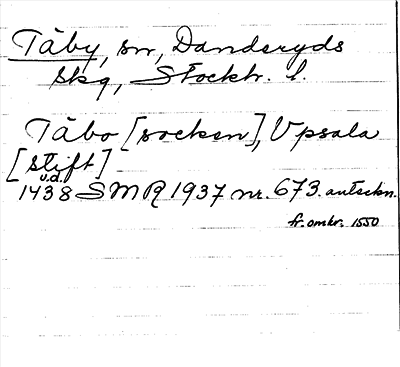 Täby, sn, Danderyds
skg, Stockh. l.
Täbo [socken], Upsala
[stift]
u.d.
1438 SMR 1937 nr. 673. anteckn.
fr. omkr. 1550